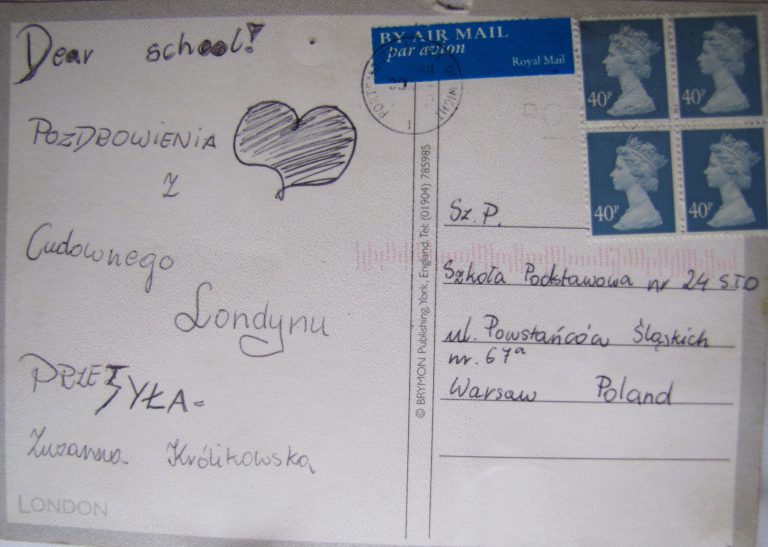 Dear school!
POZDROWIENIA
Z
Cudownego
Londynu
PRZESYŁA-
Zuzanna Królikowska
LONDON
© BRYMON Publishing, York, England. Tel: (01904) 785985
BY AIR MAIL
par avion
Royal Mail
40P
40P
40P
40P
Sz. P.
Szkoła Podstawowa nr 24 STO
ul. Powstańców Śląskich
nr. 67a
Warsaw Poland